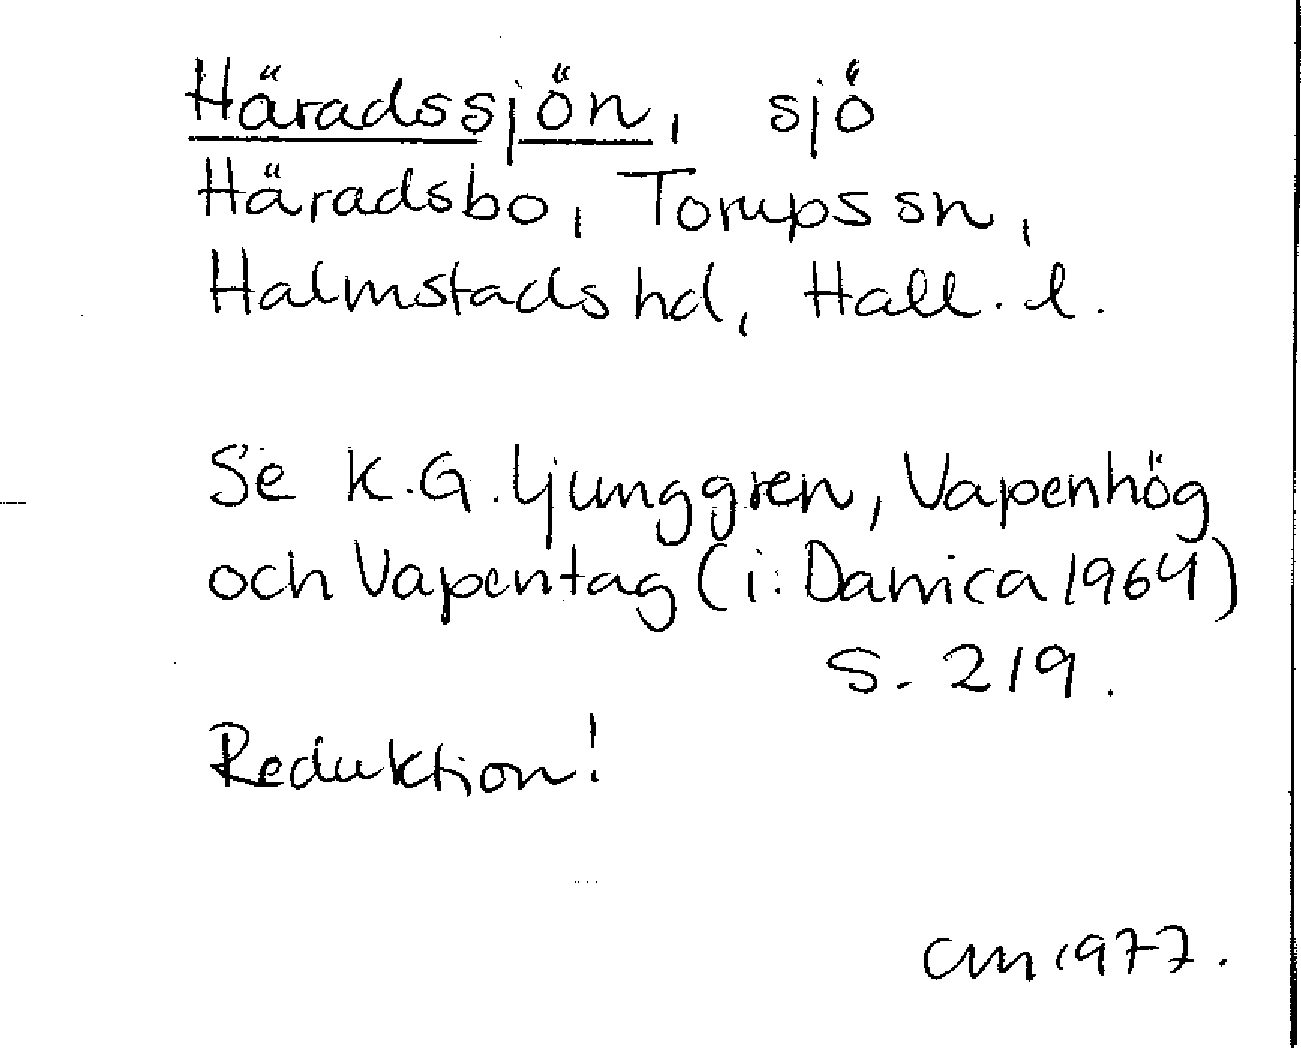 Häradssjön, sjö
Häradsbo, Torups sn,
Halmstads hd, Hall. l.
Se K.G. Ljunggren, Vapenhög
och Vapentag (i: Danica 1964)
s. 219.
Reduktion!
CM 1977.